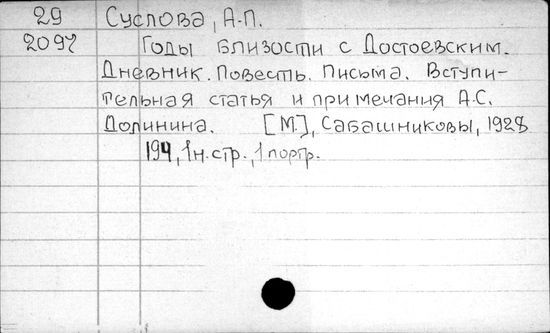 29 Суслова, А.П.
2097 Годы близости с Достоевским.
Дневник. Повесть. Письма. Вступи-
тельная статья и примечания А.С.
Долинина. [М.], Сабашниковы, 1928
194, 1н.стр., 1 портр.